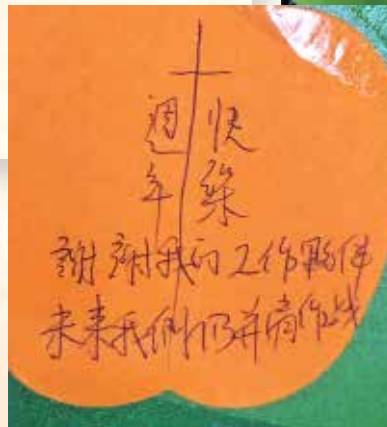 十
週年
快樂
謝謝我的工作夥伴
未来我們仍并肩作战